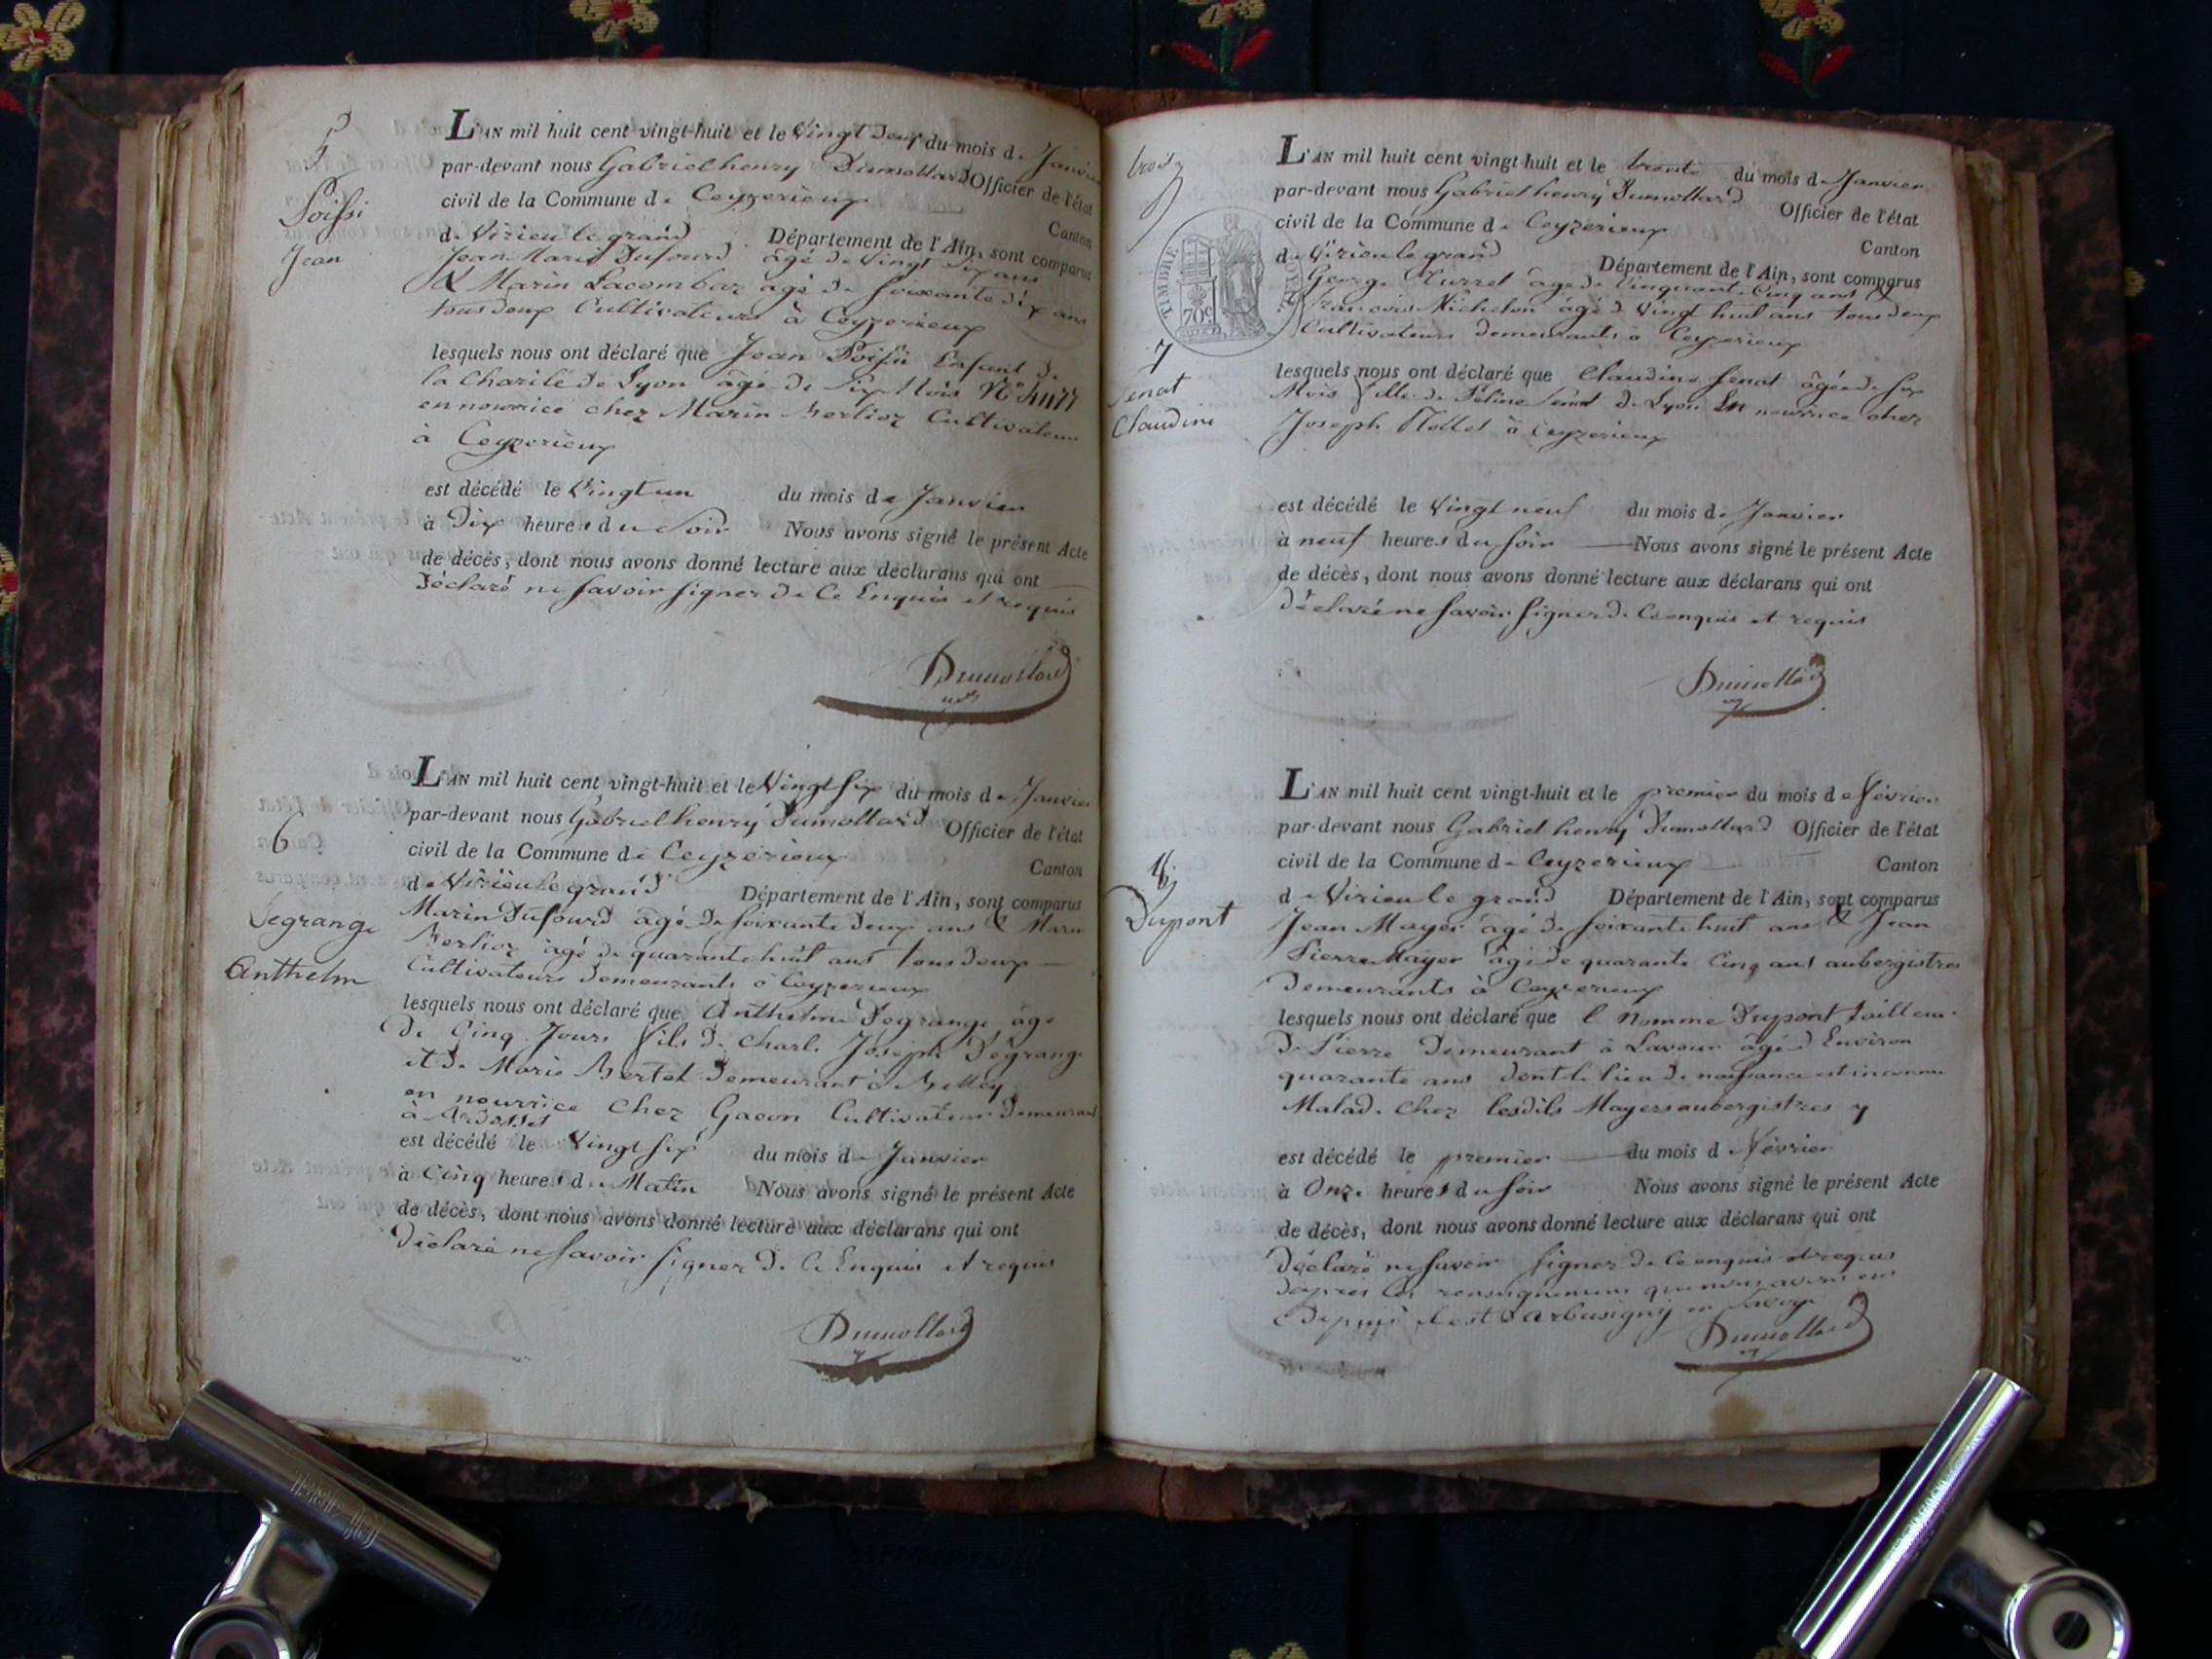 5
Poissi
Jean
L'AN mil huit cent vingt-huit et le Vingt Deux du mois de Janvier
par-devant nous Gabriel henry Dumollard Officier de l'état
civil de la Commune de Ceyzerieux Canton
de Virieu le grand Département de l'Ain, sont comparus
Jean Marie Dufourd âgé de Vingt Six ans
& Marin Lacombaz âgé de soixante dix ans
tous deux Cultivateurs à Ceyzerieux
lesquels nous ont déclaré que Jean Poissi Enfant de
la Charité de Lyon âgé de Six Mois No
en nourrice chez Marin Berlioz Cultivateur
à Ceyzerieux
est décédé le Vingt un du mois de Janvier
à Dix heures du Soir Nous avons signé le présent Acte
de décès, dont nous avons donné lecture aux déclarans qui ont
Déclaré ne savoir signer de Ce Enquis et requis
Dumollard
6
Degrange
Anthelme
L'AN mil huit cent vingt-huit et le Vingt Six du mois de Janvier
par-devant nous Gabriel henry Dumollard Officier de l'état
civil de la Commune de Ceyzerieux Canton
de Virieu le grand Département de l'Ain, sont comparus
Marin Dufourd âgé de soixante deux ans & Marin
Berlioz âgé de quarante huit ans tous deux
Cultivateurs Demeurants à Ceyzerieux
lesquels nous ont déclaré que Anthelme Degrange âgé
De Cinq Jours fils de Charle Joseph Degrange
et de Marie Bertet Demeurant à Belley
en nourrice Chez Gacon Cultivateur Demeurant
à Ardosset
est décédé le Vingt Six du mois de Janvier
à Cinq heures du Matin Nous avons signé le présent Acte
de décès, dont nous avons donné lecture aux déclarans qui ont
Déclaré ne savoir signer de Ce Enquis et requis
Dumollard
trois
TIMBRE ROYAL
70c
7
Senat
Claudine
L'AN mil huit cent vingt-huit et le trente du mois de Janvier
par-devant nous Gabriel henry Dumollard Officier de l'état
civil de la Commune de Ceyzerieux Canton
de Virieu le grand Département de l'Ain, sont comparus
George âgé de Cinquante Cinq ans &
francois Michelon âgé de Vingt huit ans tous deux
Cultivateurs demeurants à Ceyzerieux
lesquels nous ont déclaré que Claudine Senat âgée de six
Mois fille de Senat de Lyon En nourrice chez
Joseph à Ceyzerieux
est décédé le Vingt neuf du mois de Janvier
à neuf heures du soir Nous avons signé le présent Acte
de décès, dont nous avons donné lecture aux déclarans qui ont
déclaré ne savoir signer de Ce enquis et requis
Dumollard
8
Dupont
L'AN mil huit cent vingt-huit et le premier du mois de février
par-devant nous Gabriel henry Dumollard Officier de l'état
civil de la Commune de Ceyzerieux Canton
de Virieu le grand Département de l'Ain, sont comparus
Jean Mayer âgé de soixante huit ans & Jean
Pierre Mayer âgé de quarante Cinq ans aubergistres
Demeurants à Ceyzerieux
lesquels nous ont déclaré que l nomme Dupont tailleur
De Pierre Demeurant à Lavour âgé d Environ
quarante ans dont le lieu de naissance est inconnu
Malade chez lesdits Mayers aubergistres
est décédé le premier du mois de février
à Onze heures du soir Nous avons signé le présent Acte
de décès, dont nous avons donné lecture aux déclarans qui ont
Déclaré ne savoir signer de Ce enquis et requis
d'après les renseignemens que nous avons eus
Depuis il est d'arbusigny en Savoye
Dumollard